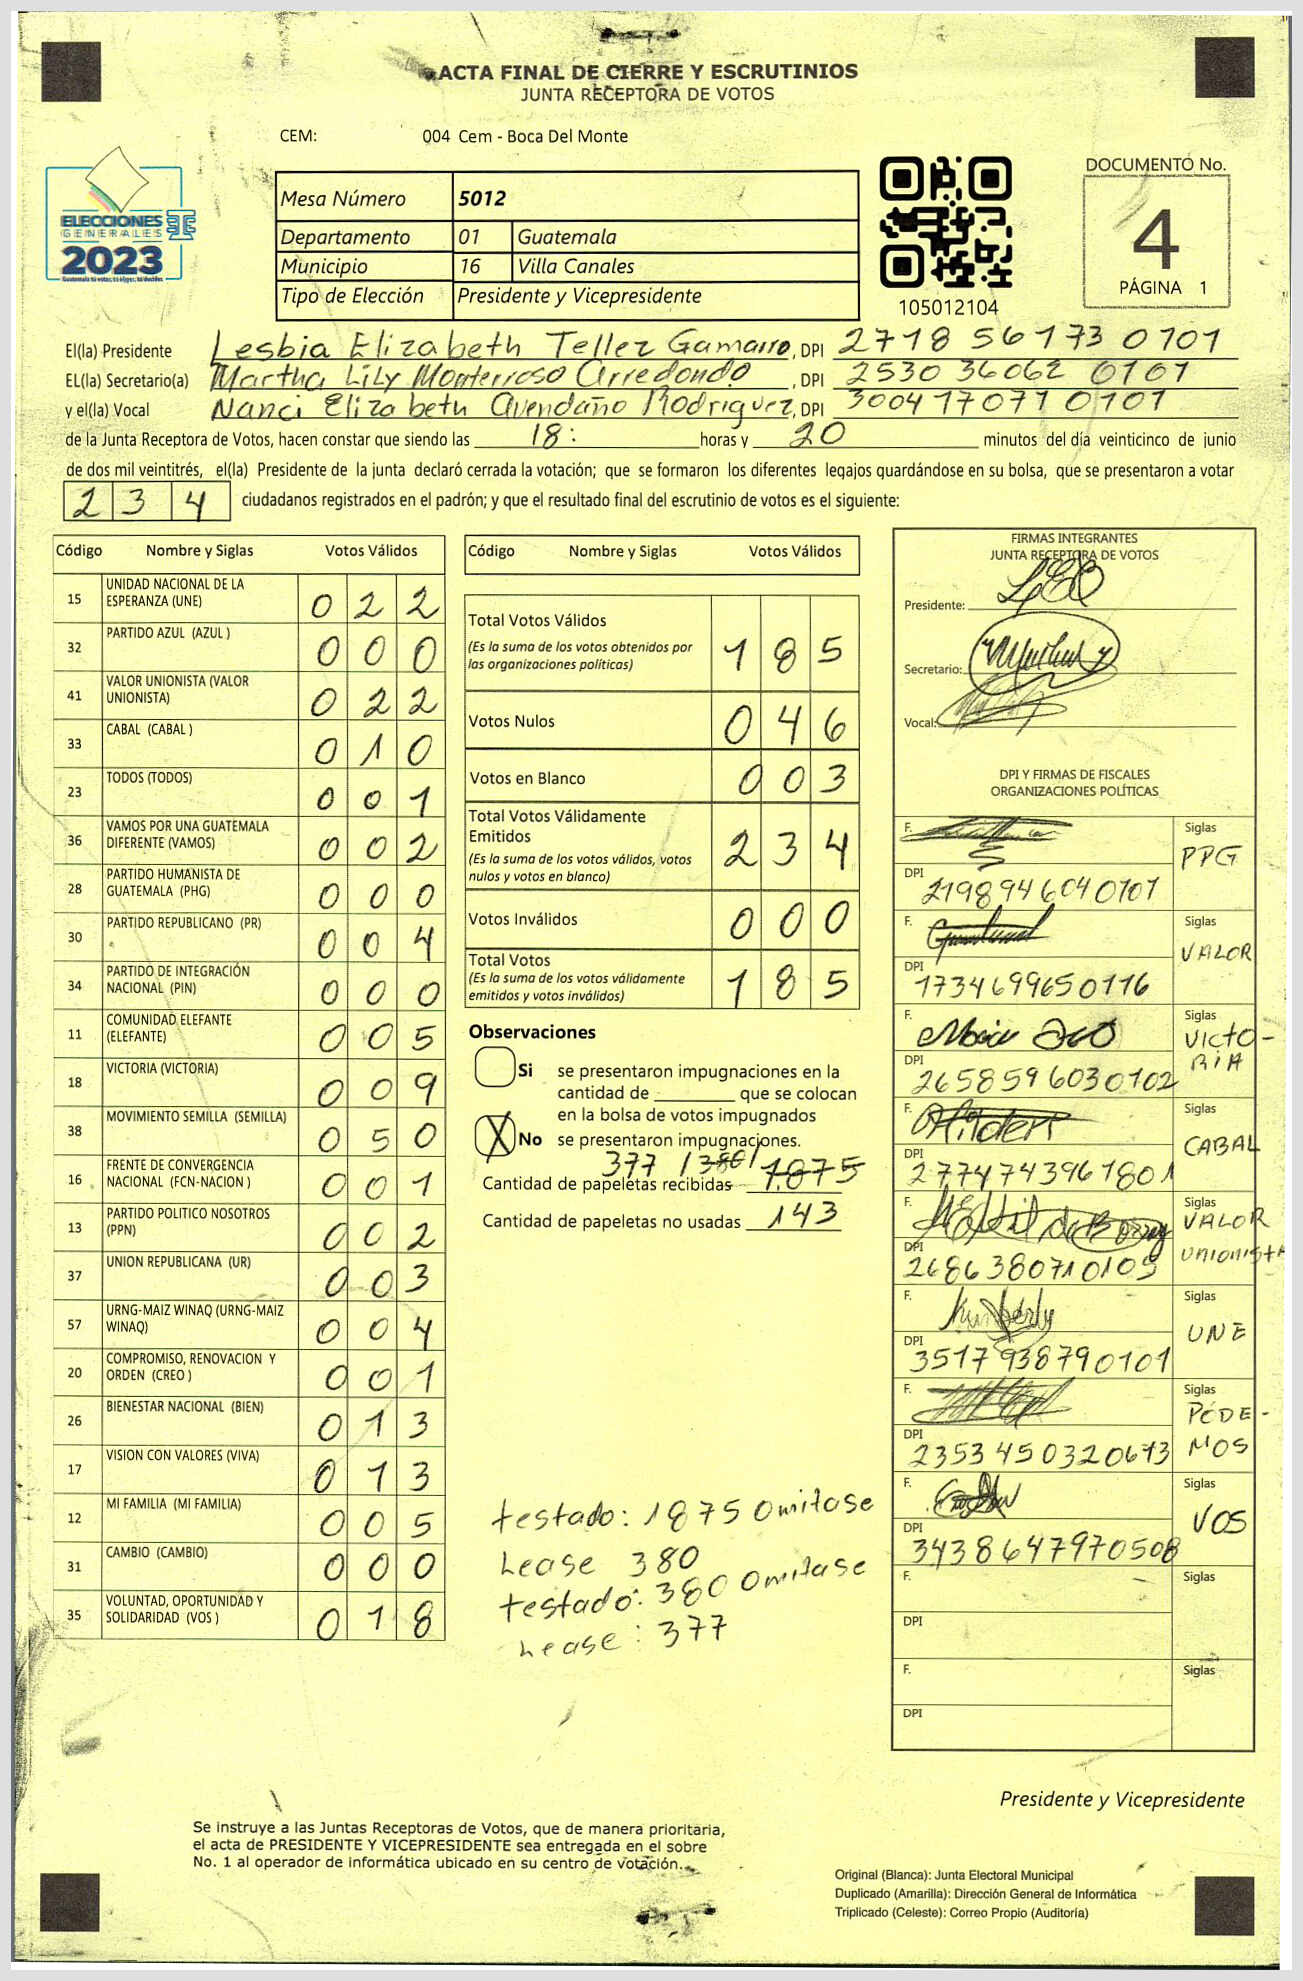 ACTA FINAL DE CIERRE Y ESCRUTINIOS
JUNTA RECEPTORA DE VOTOS
CEM: 004 Cem - Boca Del Monte
ELECCIONES
GENERALES
2023
Guatemala tu votas, tu eliges, tu decides
Mesa Número 5012
Departamento 01 Guatemala
Municipio 16 Villa Canales
Tipo de Elección Presidente y Vicepresidente
105012104
DOCUMENTO No.
4
PÁGINA 1
El(la) Presidente Lesbia Elizabeth Tellez Gamarro, DPI 2718 56173 0101
EL(la) Secretario(a) Martha Lily Monterroso Arredondo, DPI 2530 36062 0101
y el(la) Vocal Nanci Elizabeth Avendaño Rodriguez, DPI 3004170710101
de la Junta Receptora de Votos, hacen constar que siendo las 18: horas y 20 minutos del día veinticinco de junio
de dos mil veintitrés, el(la) Presidente de la junta declaró cerrada la votación; que se formaron los diferentes legajos guardándose en su bolsa, que se presentaron a votar
234 ciudadanos registrados en el padrón; y que el resultado final del escrutinio de votos es el siguiente:
Código Nombre y Siglas Votos Válidos
15 UNIDAD NACIONAL DE LA ESPERANZA (UNE) 022
32 PARTIDO AZUL (AZUL ) 000
41 VALOR UNIONISTA (VALOR UNIONISTA) 022
33 CABAL (CABAL ) 010
23 TODOS (TODOS) 001
36 VAMOS POR UNA GUATEMALA DIFERENTE (VAMOS) 002
28 PARTIDO HUMANISTA DE GUATEMALA (PHG) 000
30 PARTIDO REPUBLICANO (PR) 004
34 PARTIDO DE INTEGRACIÓN NACIONAL (PIN) 000
11 COMUNIDAD ELEFANTE (ELEFANTE) 005
18 VICTORIA (VICTORIA) 009
38 MOVIMIENTO SEMILLA (SEMILLA) 050
16 FRENTE DE CONVERGENCIA NACIONAL (FCN-NACION ) 001
13 PARTIDO POLITICO NOSOTROS (PPN) 002
37 UNION REPUBLICANA (UR) 003
57 URNG-MAIZ WINAQ (URNG-MAIZ WINAQ) 004
20 COMPROMISO, RENOVACION Y ORDEN (CREO ) 001
26 BIENESTAR NACIONAL (BIEN) 013
17 VISION CON VALORES (VIVA) 013
12 MI FAMILIA (MI FAMILIA) 005
31 CAMBIO (CAMBIO) 000
35 VOLUNTAD, OPORTUNIDAD Y SOLIDARIDAD (VOS ) 018
Código Nombre y Siglas Votos Válidos
Total Votos Válidos 185
(Es la suma de los votos obtenidos por
las organizaciones políticas)
Votos Nulos 046
Votos en Blanco 003
Total Votos Válidamente
Emitidos 234
(Es la suma de los votos válidos, votos
nulos y votos en blanco)
Votos Inválidos 000
Total Votos 185
(Es la suma de los votos válidamente
emitidos y votos inválidos)
Observaciones
Si se presentaron impugnaciones en la
cantidad de ________ que se colocan
en la bolsa de votos impugnados
X No se presentaron impugnaciones.
377 / 380 / 1875
Cantidad de papeletas recibidas
Cantidad de papeletas no usadas 143
testado: 1875 Omitase
Lease 380
testado: 380 Omitase
Lease: 377
FIRMAS INTEGRANTES
JUNTA RECEPTORA DE VOTOS
Presidente:
Secretario:
Vocal:
DPI Y FIRMAS DE FISCALES
ORGANIZACIONES POLÍTICAS
F. Siglas PPG
DPI 2198946040101
F. Siglas VALOR
DPI 1734699650116
F. Siglas VICTO-RIA
DPI 2658596030102
F. Siglas CABAL
DPI 2774743961801
F. Siglas VALOR UNIONISTA
DPI 2686380710105
F. Kimberly Siglas UNE
DPI 3517938790101
F. Siglas PODE-MOS
DPI 2353450320613
F. Siglas VOS
DPI 3438647970508
F. Siglas
DPI
F. Siglas
DPI
Presidente y Vicepresidente
Se instruye a las Juntas Receptoras de Votos, que de manera prioritaria,
el acta de PRESIDENTE Y VICEPRESIDENTE sea entregada en el sobre
No. 1 al operador de informática ubicado en su centro de votación.
Original (Blanca): Junta Electoral Municipal
Duplicado (Amarilla): Dirección General de Informática
Triplicado (Celeste): Correo Propio (Auditoría)